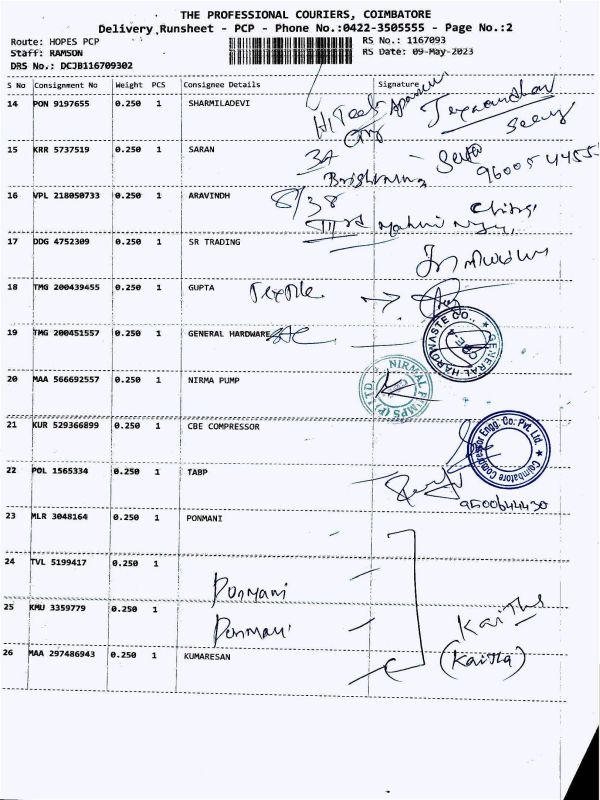 THE PROFESSIONAL COURIERS, COIMBATORE
Delivery Runsheet - PCP - Phone No.:0422-3505555 - Page No.:2
Route: HOPES PCP RS No.: 1167093
Staff: RAMSON RS Date: 09-May-2023
DRS No.: DCJB116709302
S No Consignment No Weight PCS Consignee Details Signature
14 PON 9197655 0.250 1 SHARMILADEVI
15 KRR 5737519 0.250 1 SARAN
3A
16 VPL 218050733 0.250 1 ARAVINDH 8/38
17 DDG 4752309 0.250 1 SR TRADING
18 TMG 200439455 0.250 1 GUPTA Textile →
19 TMG 200451557 0.250 1 GENERAL HARDWARE
GENERAL HARDWASTE CO.,
20 MAA 566692557 0.250 1 NIRMA PUMP
NIRMAL PUMPS (P) LTD.
21 KUR 529366899 0.250 1 CBE COMPRESSOR
Coimbatore Compressor Engg. Co: Pvt. Ltd.
22 POL 1565334 0.250 1 TABP
9500644430
23 MLR 3048164 0.250 1 PONMANI
24 TVL 5199417 0.250 1
Ponmani
25 KMU 3359779 0.250 1
Ponmani
26 MAA 297486943 0.250 1 KUMARESAN